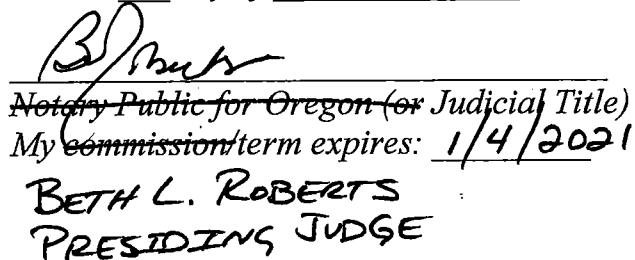 Notary Public for Oregon (or Judicial Title)
My commission/term expires: 1/4/2021
BETH L. ROBERTS
PRESIDING JUDGE